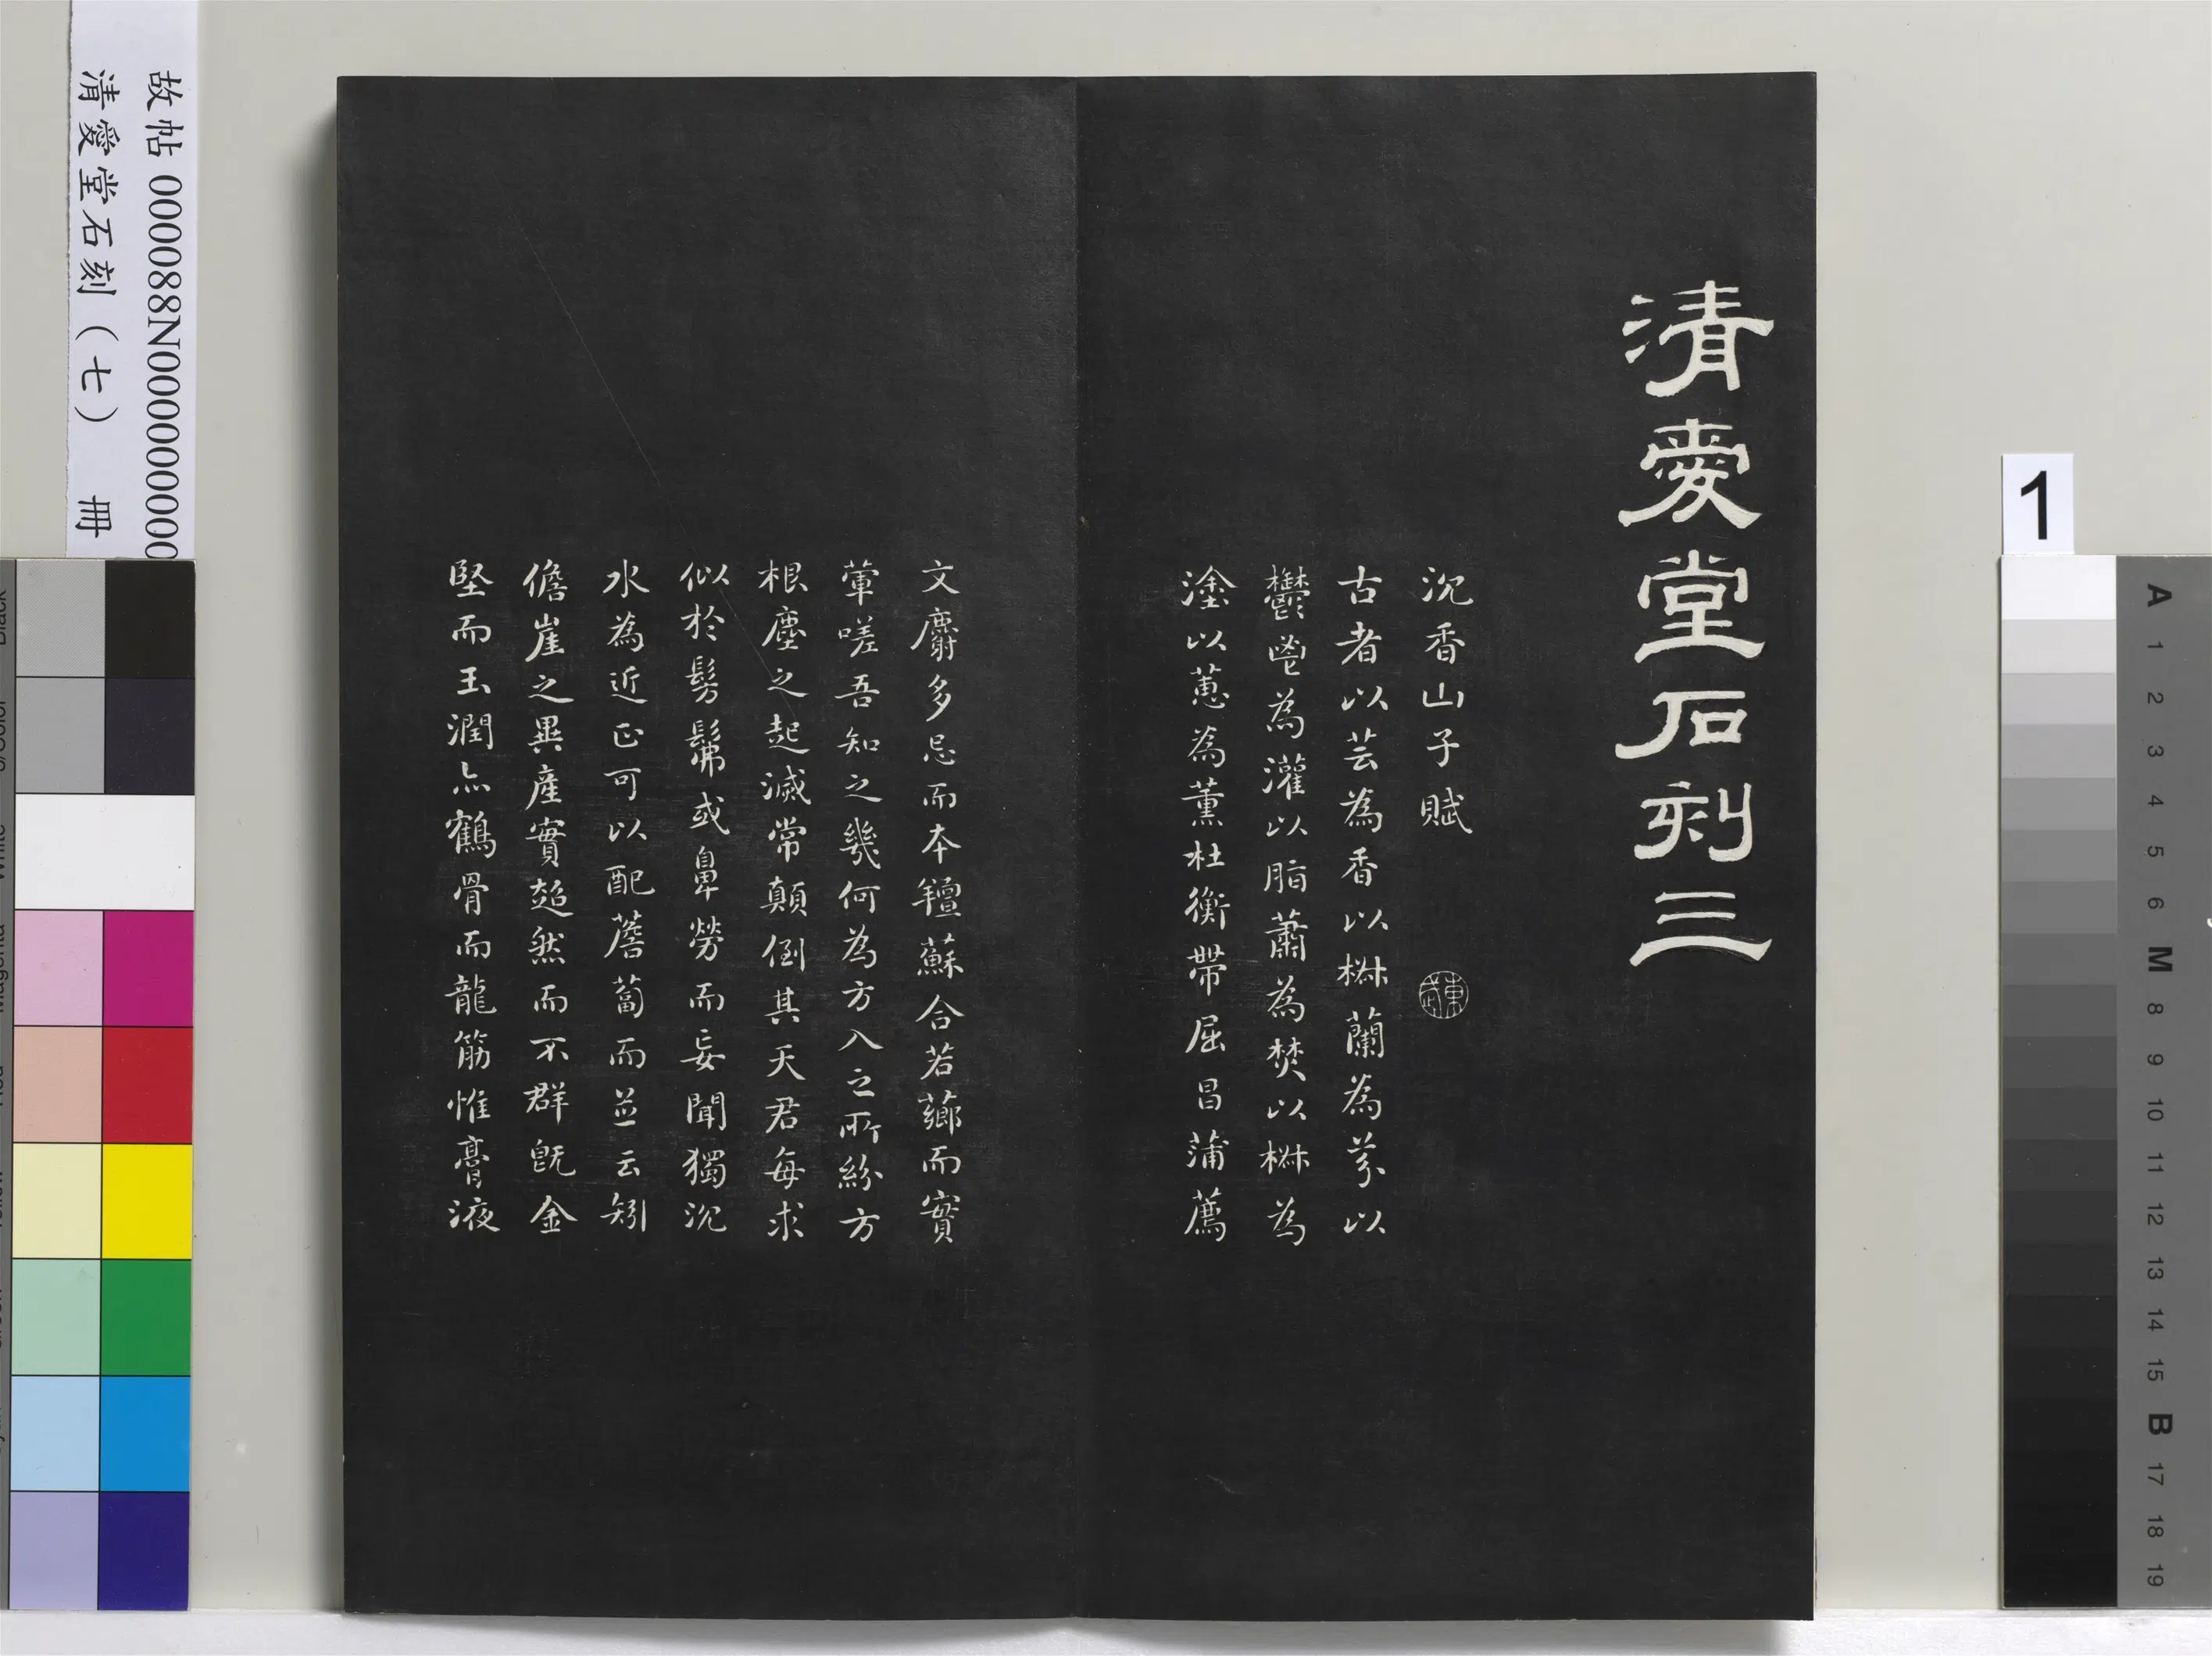 清愛堂石刻三
沉香山子賦
東武
古者以芸為香以椒蘭為芬以
鬱鬯為灌以脂蕭為焚以椒為
塗以蕙為薰杜衡帶屈昌蒲薦
文麝多忌而本羶蘇合若薌而實
葷嗟吾知之幾何為方入之所紛方
根塵之起滅常顛倒其天君每求
似於髣髴或鼻勞而妄聞獨沉
水為近正可以配薝蔔而並云矧
儋崖之異產實超然而不群既金
堅而玉潤亦鶴骨而龍筋惟膏液
故帖 000088N000000000
清愛堂石刻(七) 冊
1
A 1 2 3 4 5 6 M 8 9 10 11 12 13 14 15 B 17 18 19